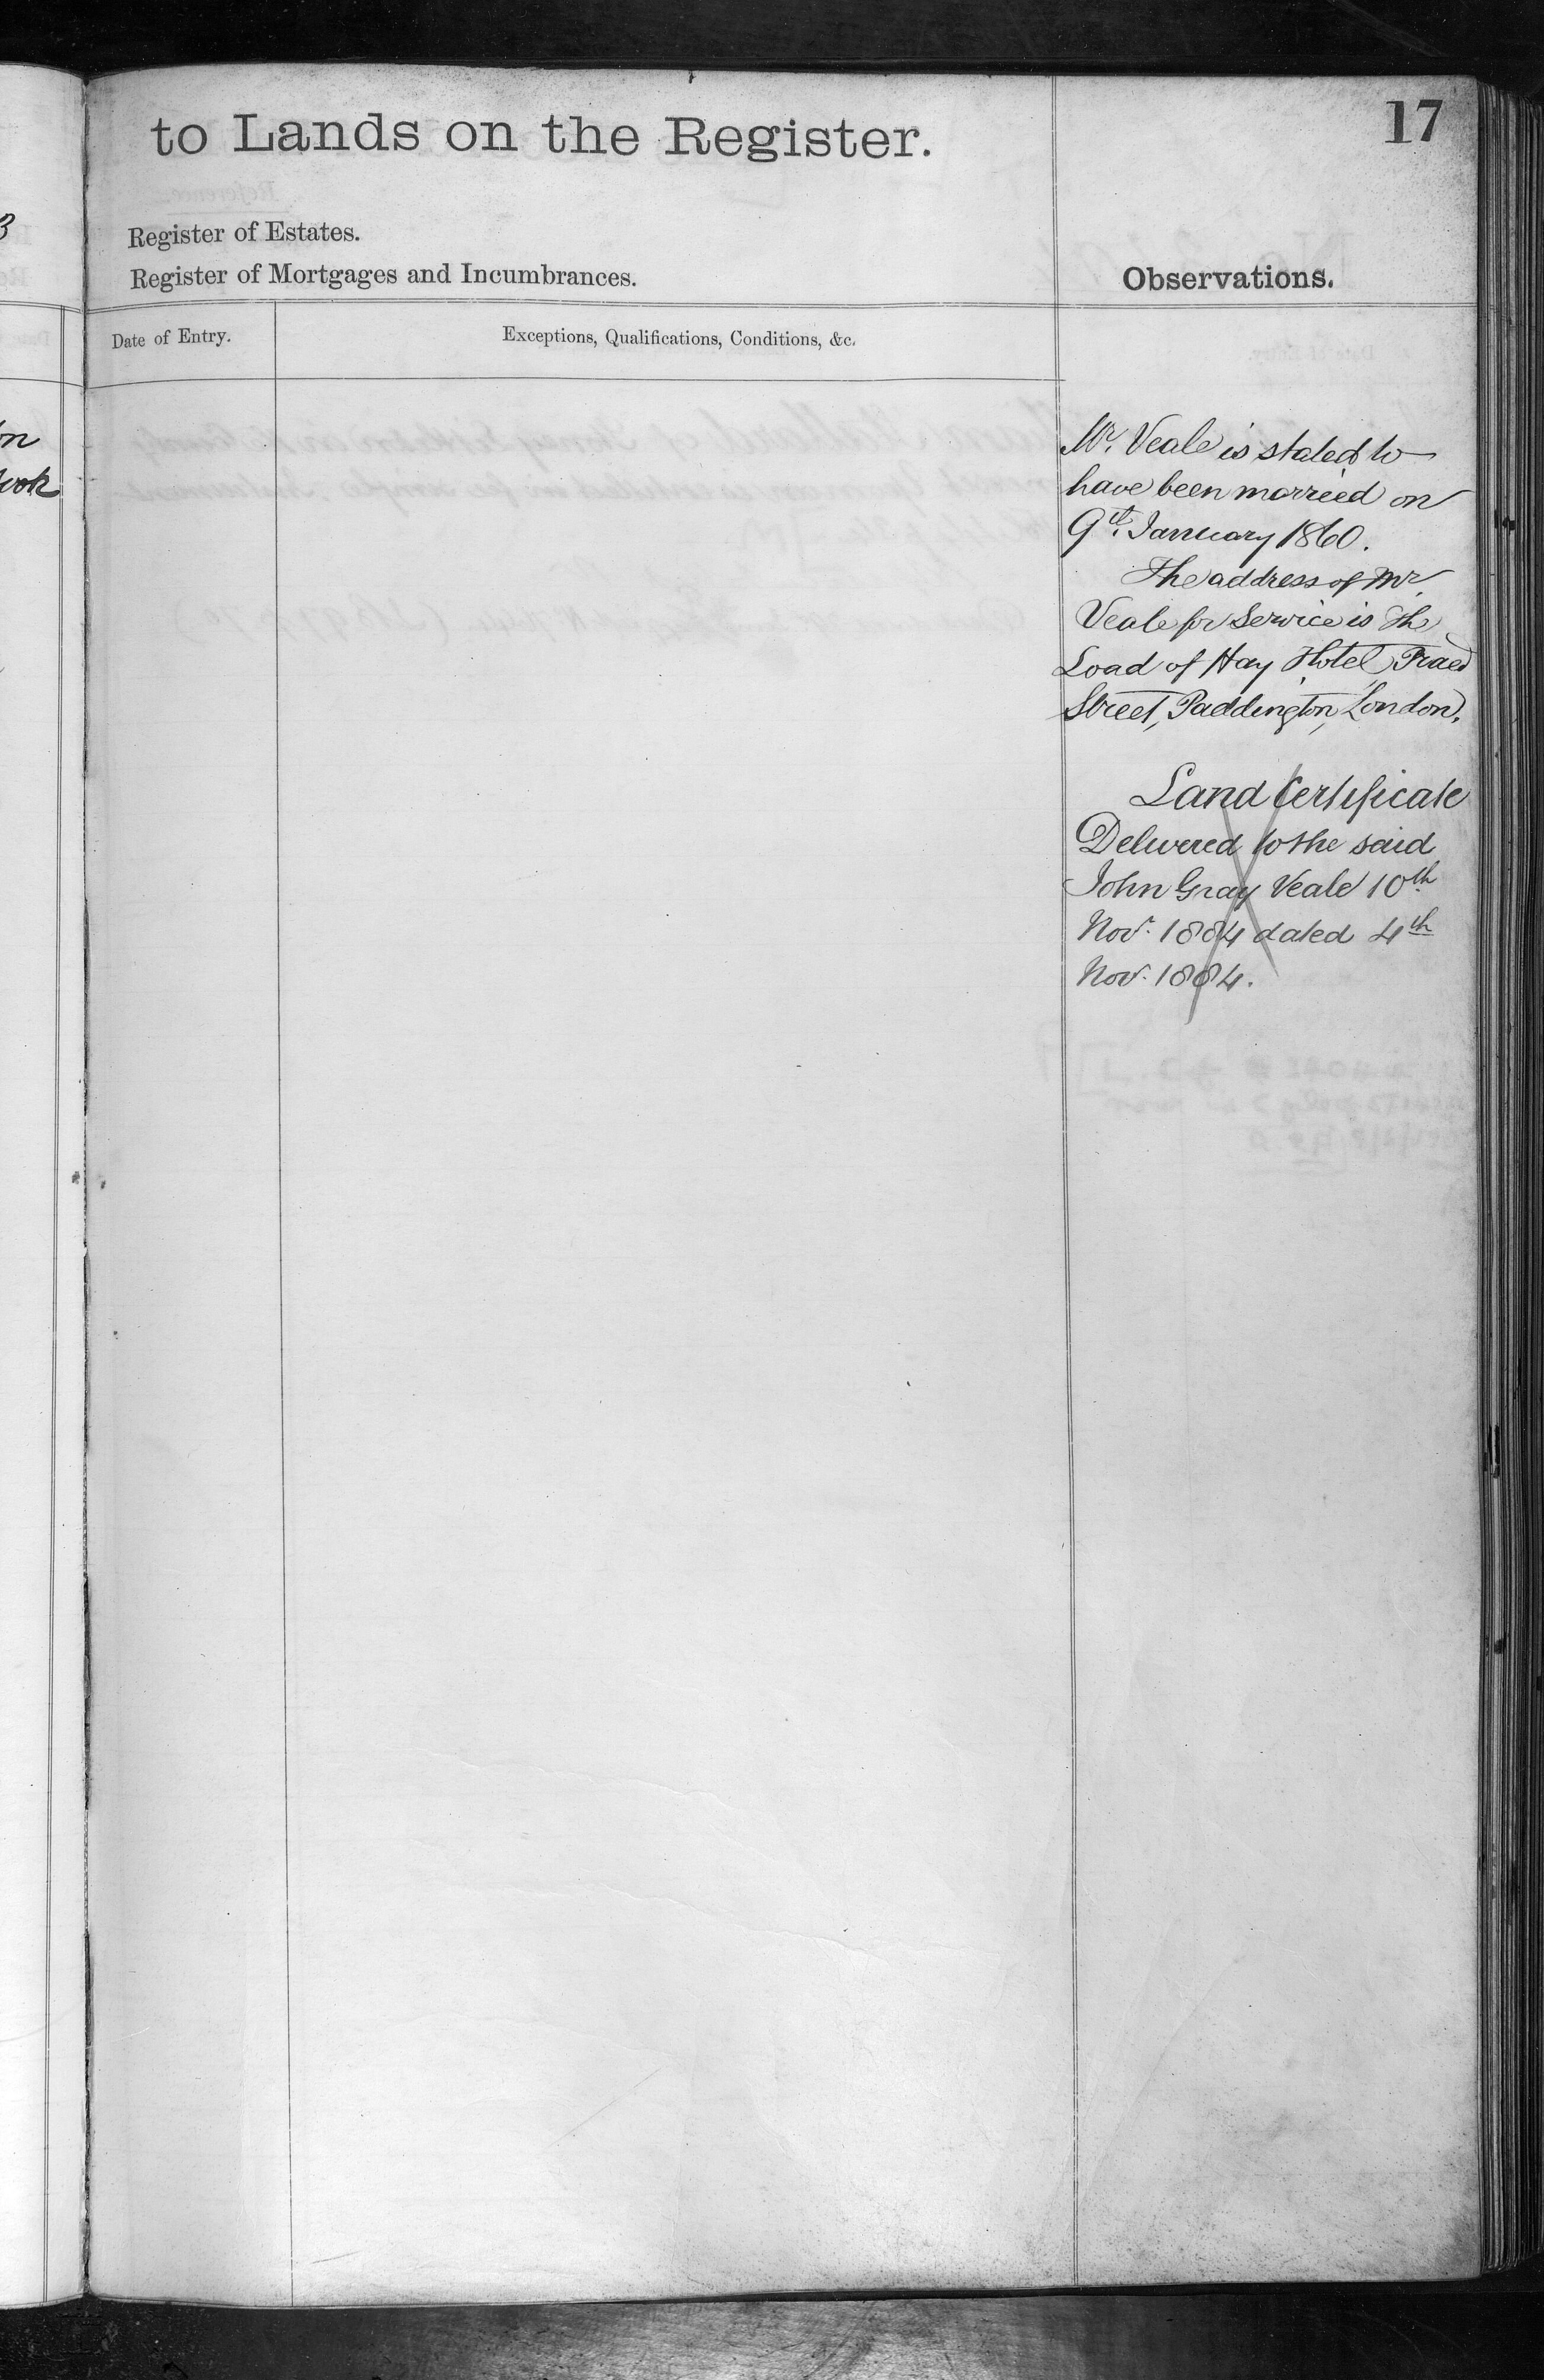 to Lands on the Register.
17
Register of Estates.
Register of Mortgages and Incumbrances.
Observations.
Date of Entry.
Exceptions, Qualifications, Conditions, &c.
Mr. Veale is stated to
have been married on
9th. January 1860.
The address of Mr.
Veale for Service is The
Load of Hay Hotel, Praed
Street, Paddington, London.
Land Certificate
Delivered to the said
John Gray Veale 10th
Nov. 1884 dated 4th
Nov. 1884.